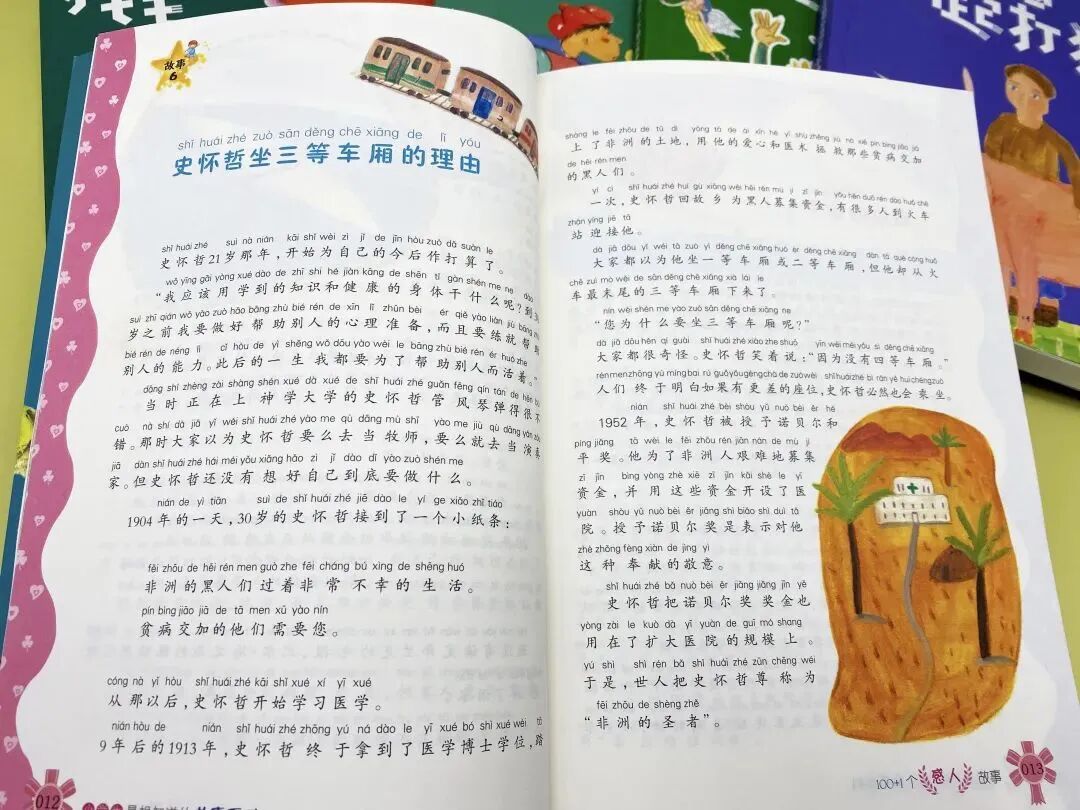 故事
6
shǐ huái zhé zuò sān děng chē xiāng de lǐ yóu
史怀哲坐三等车厢的理由
shǐ huái zhé suì nà nián kāi shǐ wèi zì jǐ de jīn hòu zuò dǎ suàn le
史怀哲21岁那年，开始为自己的今后作打算了。
wǒ yīng gāi yòng xué dào de zhī shi hé jiàn kāng de shēn tǐ gàn shén me ne dào
“我应该用学到的知识和健康的身体干什么呢？到30
suì zhī qián wǒ yào zuò hǎo bāng zhù bié rén de xīn lǐ zhǔn bèi ér qiě yào liàn jiù bāng zhù
岁之前我要做好帮助别人的心理准备，而且要练就帮助
bié rén de néng lì cǐ hòu de yì shēng wǒ dōu yào wèi le bāng zhù bié rén ér huó zhe
别人的能力。此后的一生我都要为了帮助别人而活着。”
dāng shí zhèng zài shàng shén xué dà xué de shǐ huái zhé guǎn fēng qín tán de hěn bú
当时正在上神学大学的史怀哲管风琴弹得很不
cuò nà shí dà jiā yǐ wéi shǐ huái zhé yào me qù dāng mù shī yào me jiù qù dāng yǎn zòu
错。那时大家以为史怀哲要么去当牧师，要么就去当演奏
jiā dàn shǐ huái zhé hái méi yǒu xiǎng hǎo zì jǐ dào dǐ yào zuò shén me
家。但史怀哲还没有想好自己到底要做什么。
nián de yì tiān suì de shǐ huái zhé jiē dào le yí ge xiǎo zhǐ tiáo
1904年的一天，30岁的史怀哲接到了一个小纸条：
fēi zhōu de hēi rén men guò zhe fēi cháng bú xìng de shēng huó
非洲的黑人们过着非常不幸的生活。
pín bìng jiāo jiā de tā men xū yào nín
贫病交加的他们需要您。
cóng nà yǐ hòu shǐ huái zhé kāi shǐ xué xí yī xué
从那以后，史怀哲开始学习医学。
nián hòu de nián shǐ huái zhé zhōng yú ná dào le yī xué bó shì xué wèi tà
9年后的1913年，史怀哲终于拿到了医学博士学位，踏
012
shàng le fēi zhōu de tǔ dì yòng tā de ài xīn hé yī shù zhěng jiù nà xiē pín bìng jiāo jiā
上了非洲的土地，用他的爱心和医术拯救那些贫病交加
de hēi rén men
的黑人们。
yí cì shǐ huái zhé huí gù xiāng wèi hēi rén mù jí zī jīn yǒu hěn duō rén dào huǒ chē
一次，史怀哲回故乡为黑人募集资金，有很多人到火车
zhàn yíng jiē tā
站迎接他。
dà jiā dōu yǐ wéi tā zuò yī děng chē xiāng huò èr děng chē xiāng dàn tā què cóng huǒ
大家都以为他坐一等车厢或二等车厢，但他却从火
chē zuì mò wěi de sān děng chē xiāng xià lái le
车最末尾的三等车厢下来了。
nín wèi shén me yào zuò sān děng chē xiāng ne
“您为什么要坐三等车厢呢？”
dà jiā dōu hěn qí guài shǐ huái zhé xiào zhe shuō yīn wèi méi yǒu sì děng chē xiāng
大家都很奇怪。史怀哲笑着说：“因为没有四等车厢。”
rén men zhōng yú míng bai rú guǒ yǒu gèng chà de zuò wèi shǐ huái zhé bì rán yě huì chéng zuò
人们终于明白如果有更差的座位，史怀哲必然也会乘坐。
nián shǐ huái zhé bèi shòu yǔ nuò bèi ěr hé
1952年，史怀哲被授予诺贝尔和
píng jiǎng tā wèi le fēi zhōu rén jiān nán de mù jí
平奖。他为了非洲人艰难地募集
zī jīn bìng yòng zhè xiē zī jīn kāi shè le yī
资金，并用这些资金开设了医
yuàn shòu yǔ nuò bèi ěr jiǎng shì biǎo shì duì tā
院。授予诺贝尔奖是表示对他
zhè zhǒng fèng xiàn de jìng yì
这种奉献的敬意。
shǐ huái zhé bǎ nuò bèi ěr jiǎng jiǎng jīn yě
史怀哲把诺贝尔奖奖金也
yòng zài le kuò dà yī yuàn de guī mó shang
用在了扩大医院的规模上。
yú shì shì rén bǎ shǐ huái zhé zūn chēng wéi
于是，世人把史怀哲尊称为
fēi zhōu de shèng zhě
“非洲的圣者”。
100+1个感人故事
013